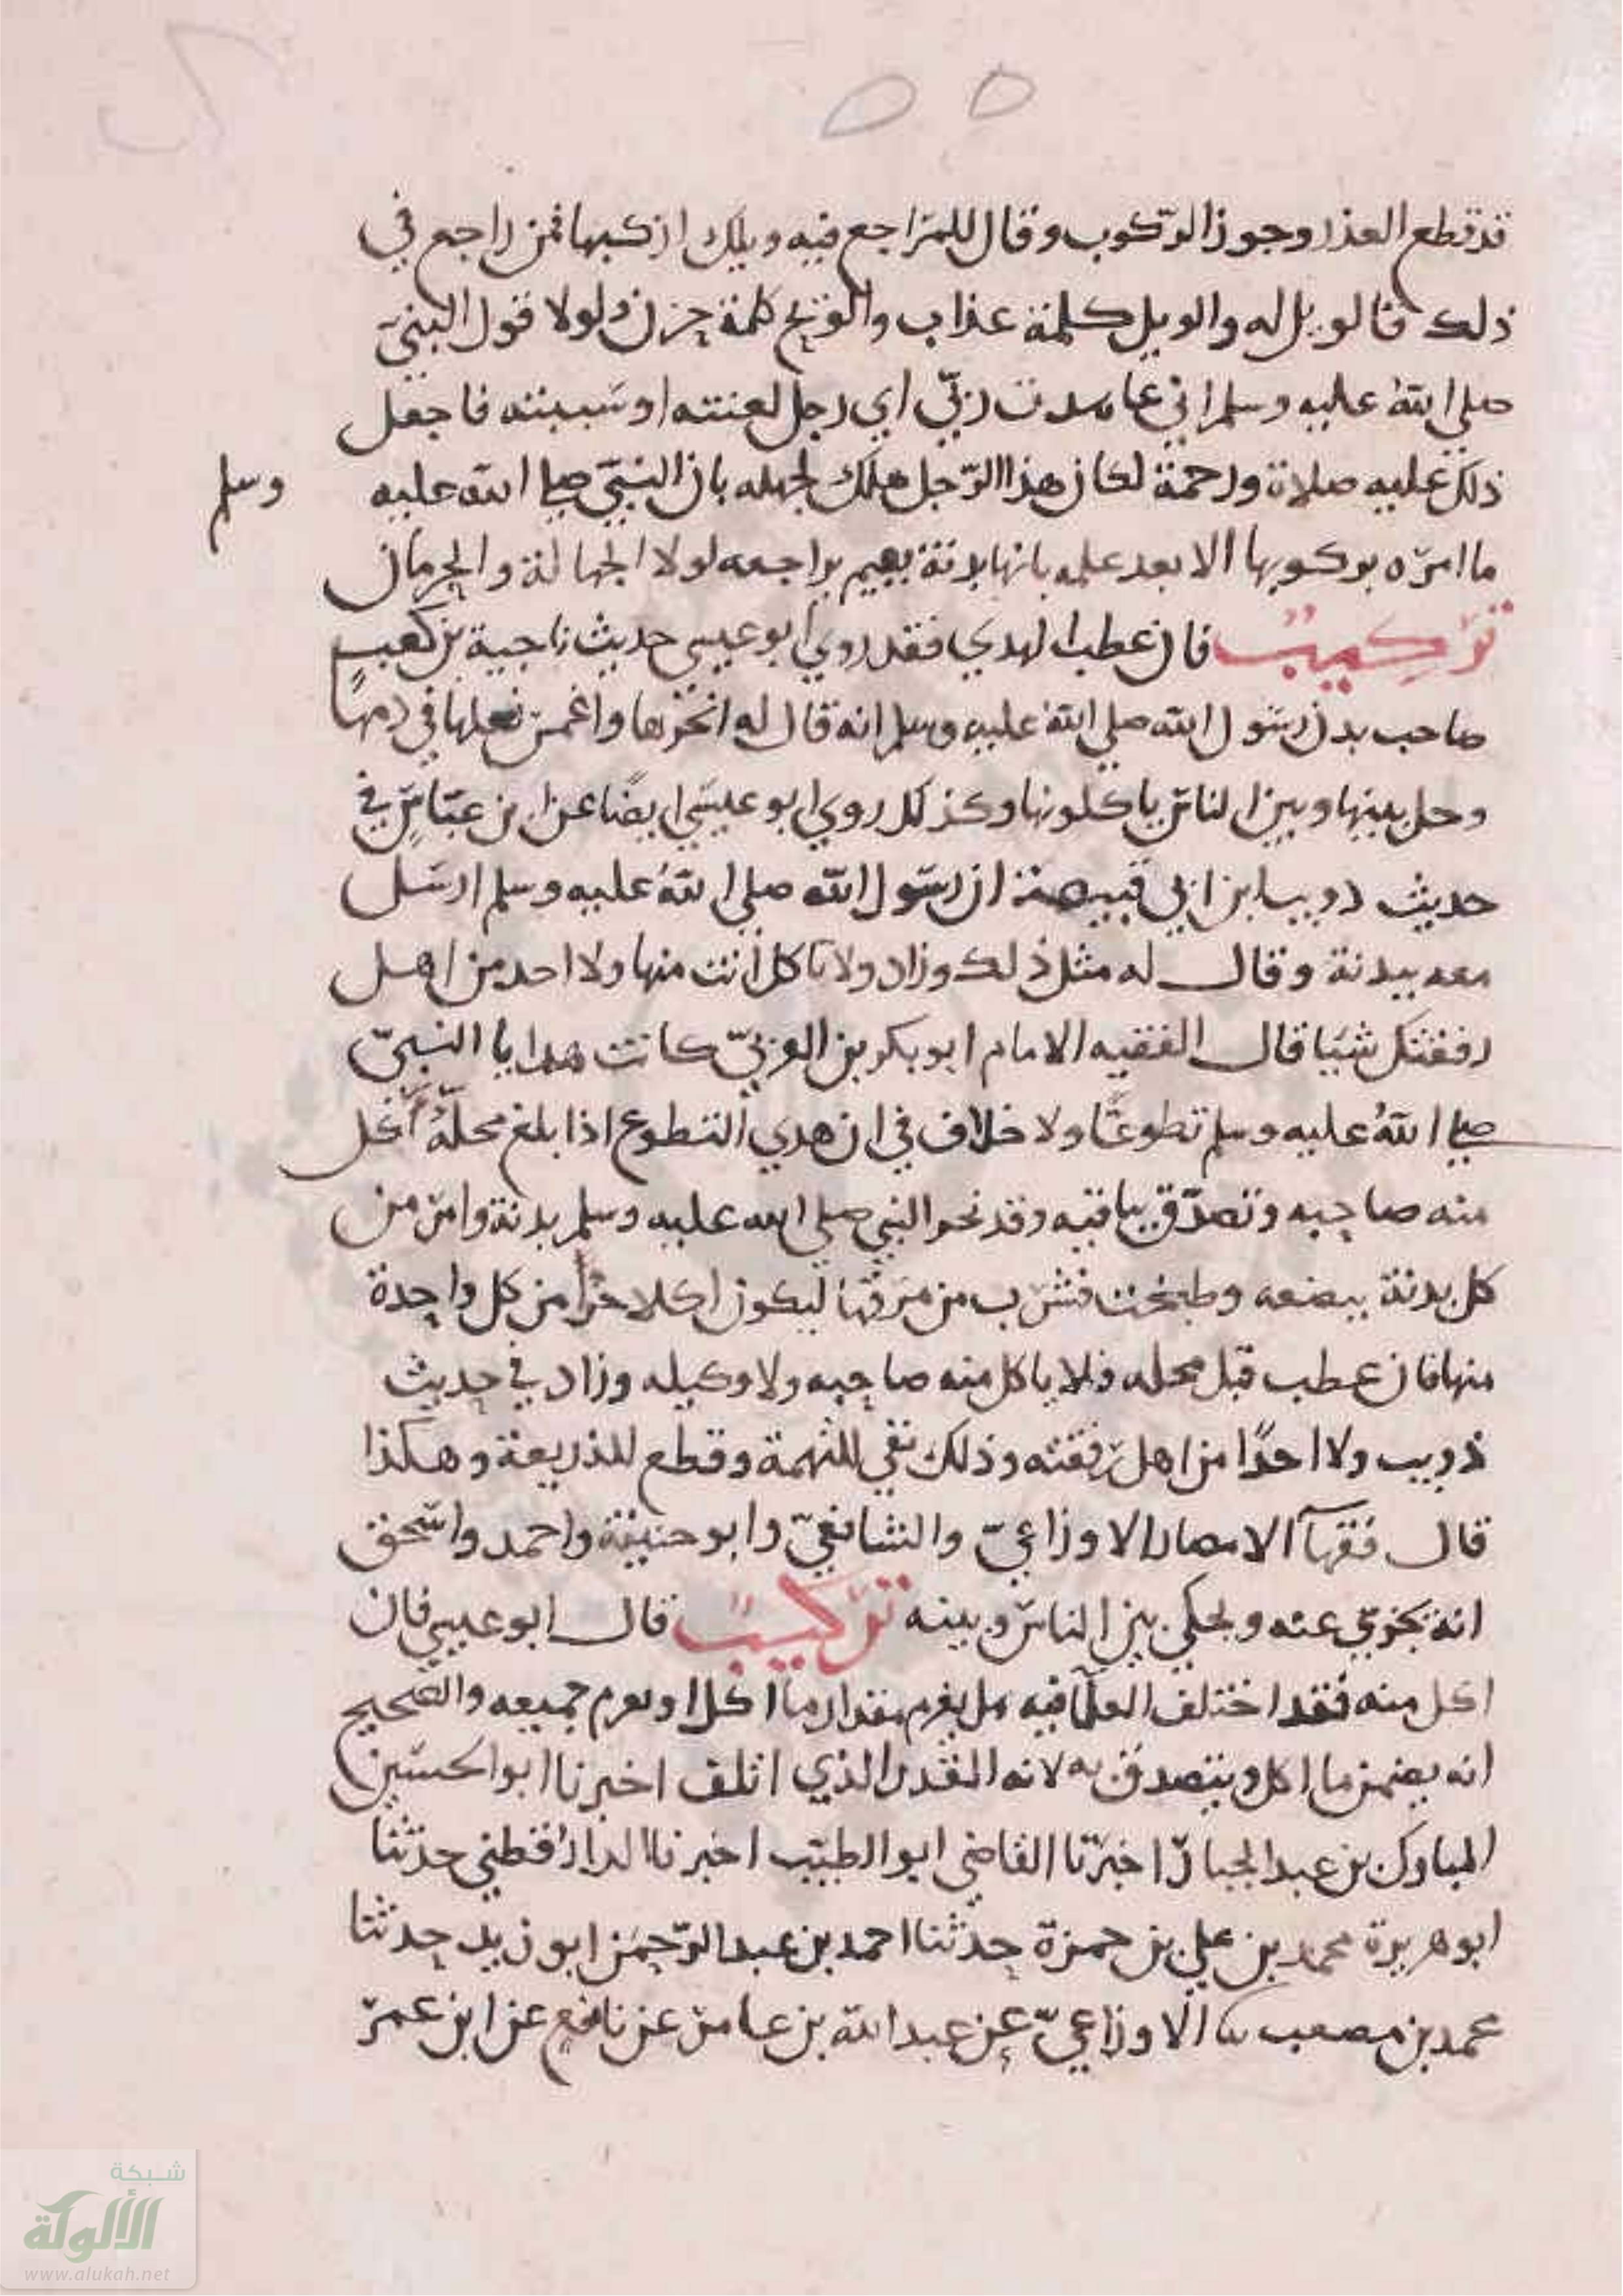 ٥٥
قد قطع العذر وجوز الركوب وقال للمراجع فيه ويلك اركبها فمن راجع في
ذلك فالويل له والويل كلمة عذاب والويح كلمة حزن ولولا قول النبي
صلي الله عليه وسلم اني عاهدت ربي اي رجل لعنته او سببته فاجعل
ذلك عليه صلاة ورحمة لكان هذا الرجل هلك لجهله بان النبي صلي الله عليه وسلم
ما امره بركوبها الا بعد علمه بانها بدنة يراجعه لولا الجهالة والحرمان
تركيب فان عطب الهدي فقد روي ابو عيسي حديث ناجية بن كعب
صاحب بدن رسول الله صلي الله عليه وسلم انه قال له انحرها واغمس نعلها في دمها
وخل بينها وبين الناس ياكلونها وكذلك روي ابو عيسي ايضا عن ابن عباس في
حديث ذويب ابن ابي قبيصة ان رسول الله صلي الله عليه وسلم ارسل
معه ببدنة وقال له مثل ذلك وزاد ولا تاكل انت منها ولا احد من اهل
رفقتك شيا قال الفقيه الامام ابو بكر بن العربي كانت هدايا النبي
صلي الله عليه وسلم تطوعا ولا خلاف في ان هدي التطوع اذا بلغ محله اكل
منه صاحبه وتصدق بباقيه وقد نحر النبي صلي الله عليه وسلم بدنة وامر من
كل بدنة ببضعه وطبخت فشرب من مرقها ليكون اكلا من كل واحدة
منها فان عطب قبل محله فلا ياكل منه صاحبه ولا وكيله وزاد في حديث
ذويب ولا احدا من اهل رفقته وذلك نفي للتهمة وقطع للذريعة وهكذا
قال فقهآ الامصار الاوزاعي والشافعي وابو حنيفة واحمد واسحق
انه يجزي عنه ويخلي بين الناس وبينه تركيب قال ابو عيسي فان
اكل منه فقد اختلف العلمآ فيه هل يغرم مقدار ما اكل او يغرم جميعه والصحيح
انه يضمن ما اكل ويتصدق به لانه القدر الذي اتلف اخبرنا ابو الحسين
المبارك بن عبد الجبار اخبرنا القاضي ابو الطيب اخبرنا الدارقطني حدثنا
ابو هريرة محمد بن علي بن حمزة حدثنا احمد بن عبد الرحمن ابو زيد حدثنا
محمد بن مصعب نا الاوزاعي عن عبد الله بن عامر عن نافع عن ابن عمر
شبكة
الألوكة
www.alukah.net